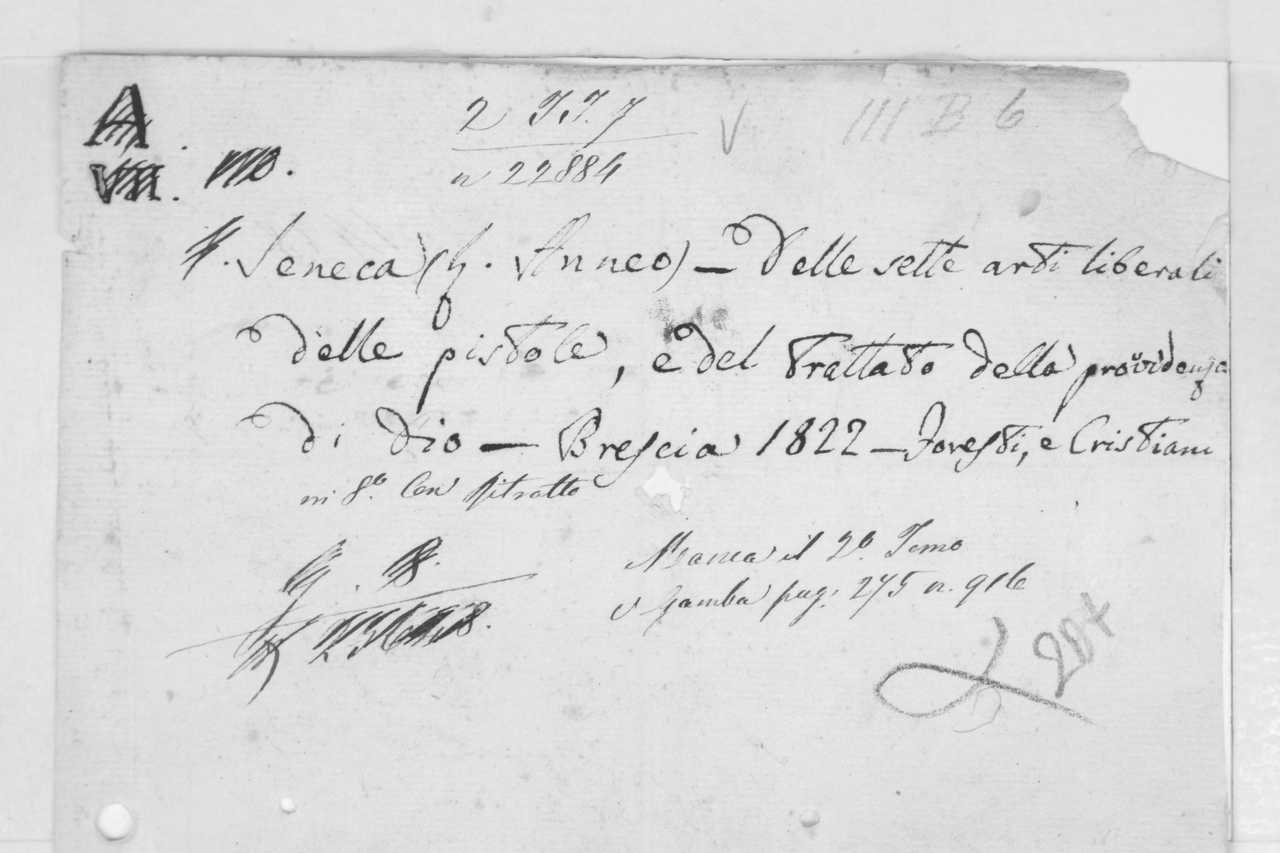 A.
2 JJ. 7
III B 6
VIII.
n 22884
Seneca (L. Anneo) — Delle sette arti liberali
delle pistole, e del trattato della providenza
di Dio — Brescia 1822 — Foresti, e Cristiani
in 8.º Con Ritratto
Manca il 2º. Tomo
V Gamba pag: 275 n. 916
204